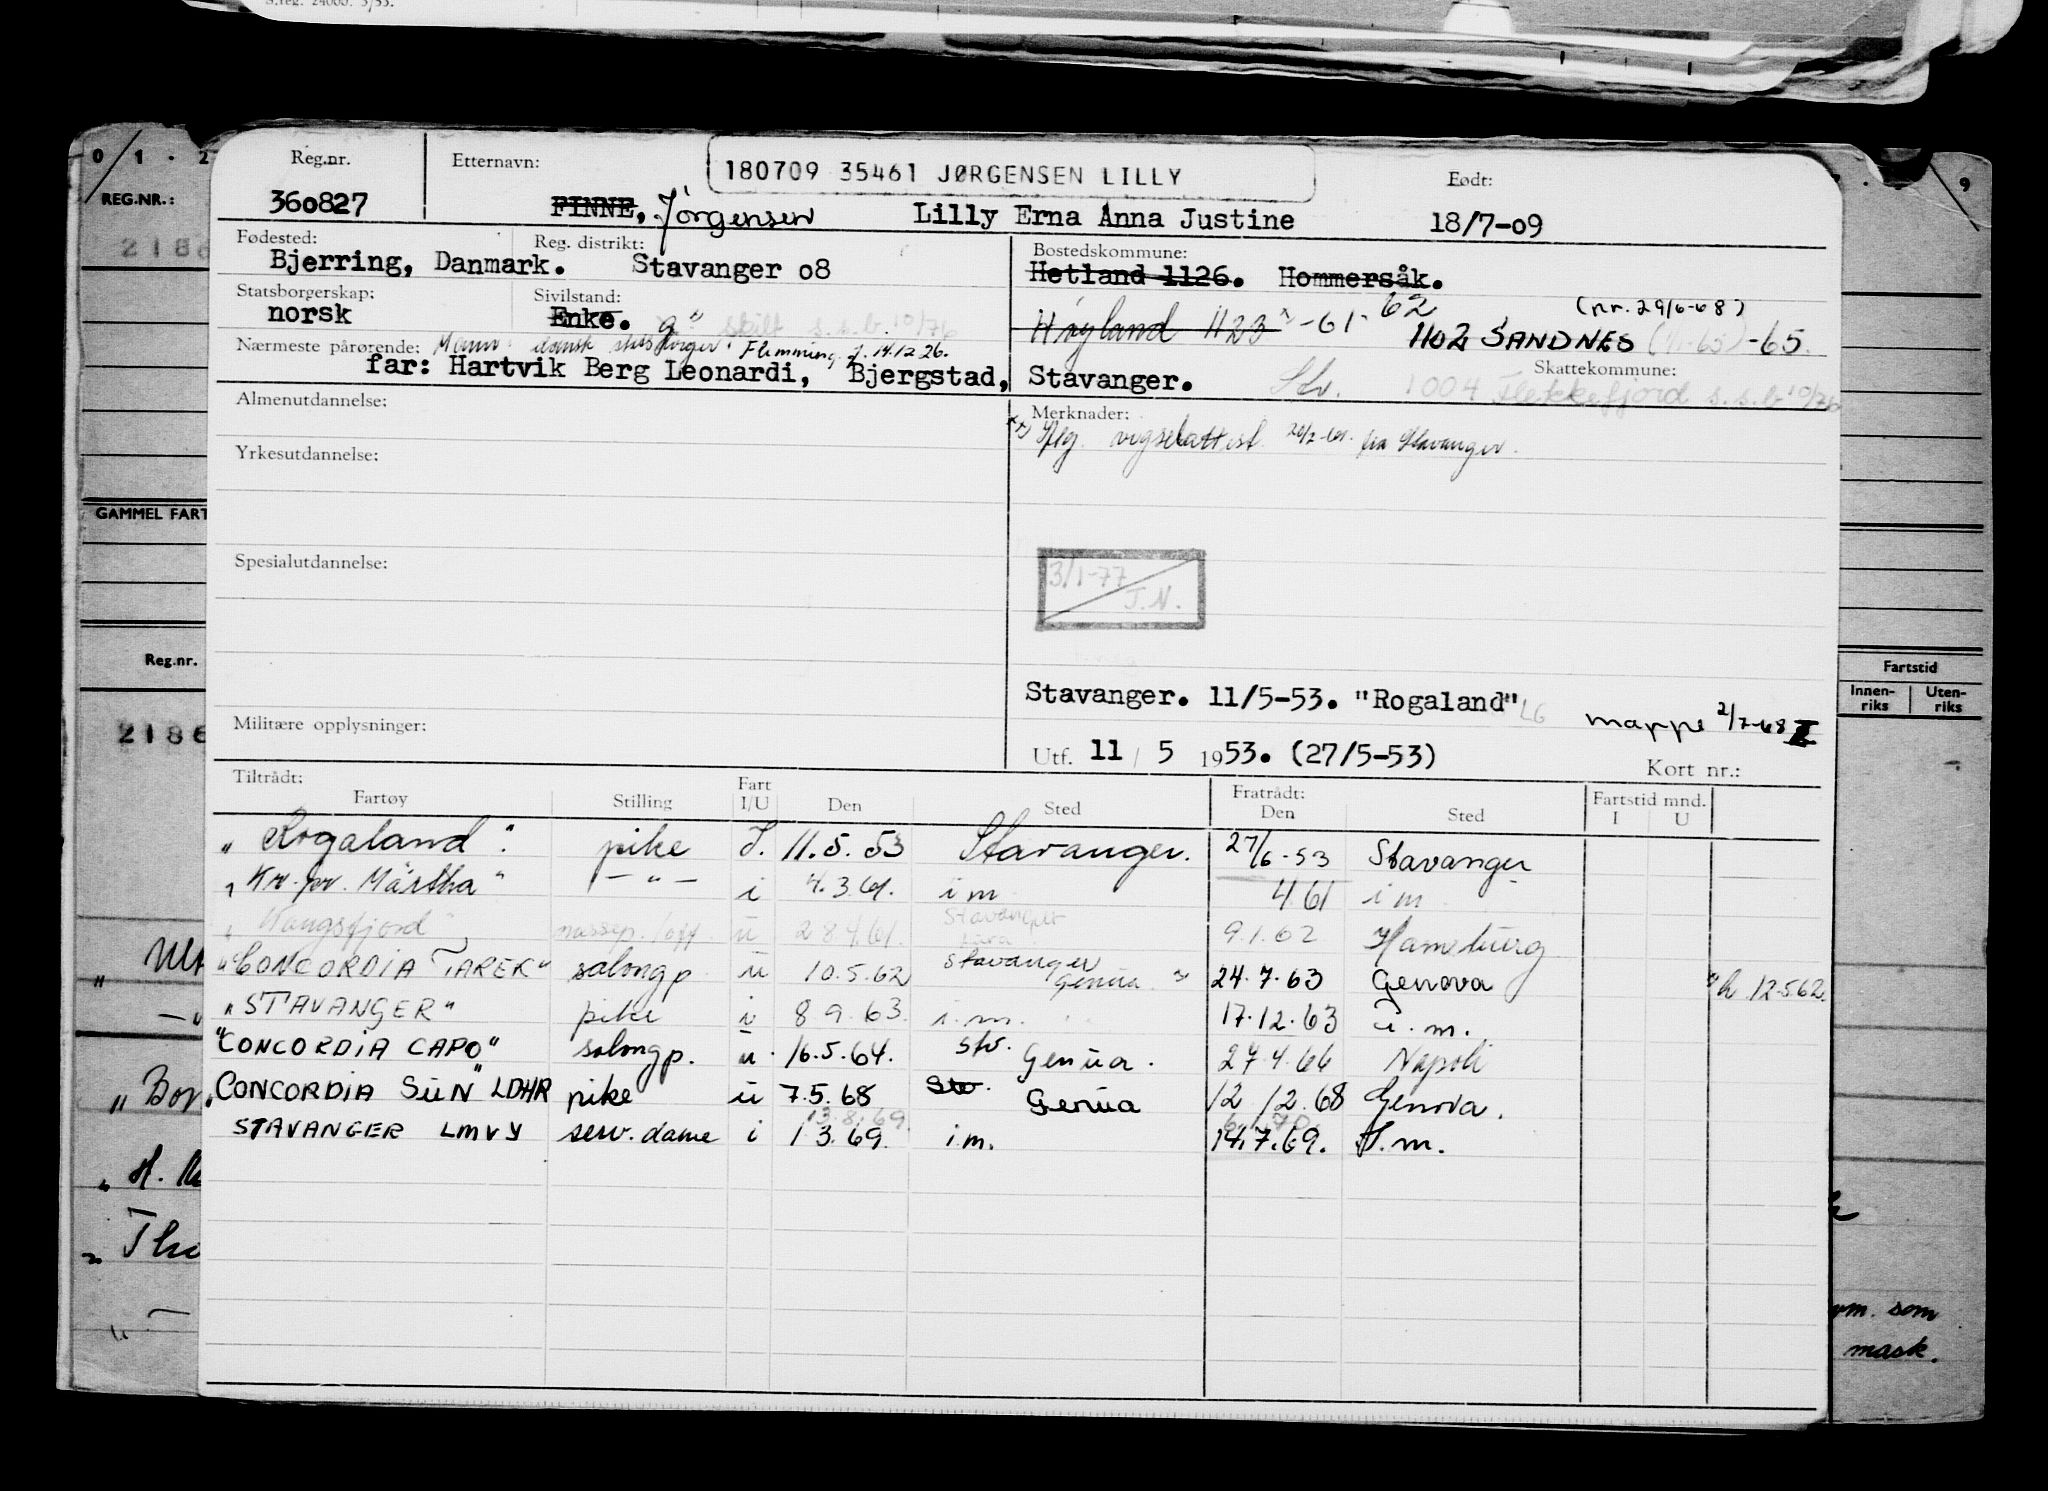 S.reg. 24000. 3/53.
0 1 . 2
9
REG.NR.:
2186
GAMMEL FART
Reg.nr.
2186
Fartstid
Innen-riks Uten-riks
Reg.nr. Etternavn: 180709 35461 JØRGENSEN LILLY Født:
360827 FINNE, Jörgensen Lilly Erna Anna Justine 18/7-09
Fødested: Reg. distrikt: Bostedskommune:
Bjerring, Danmark. Stavanger 08 Hetland 1126. Hommersåk.
Statsborgerskap: Sivilstand:
norsk Enke. g" skilt s.s.b. 10/76 Høyland 1123 -61-62 (nr. 29/6-68)
1102 SANDNES -65.
Nærmeste pårørende: Mann: dansk statsborger. Flemming f. 14.12.26. Skattekommune:
far: Hartvik Berg Leonardi, Bjergstad, Stavanger. Stv. 1004 Flekkefjord s.s.b 10/76
Almenutdannelse: Merknader:
vigselattest fra Stavanger.
Yrkesutdannelse:
Spesialutdannelse:
3/1-77
J.N.
Stavanger. 11/5-53. "Rogaland" LG
mappe 2/7-68
Militære opplysninger:
Utf. 11 / 5 1953. (27/5-53)
Kort nr.:
Tiltrådt: Fartøy Stilling Fart I/U Den Sted Fratrådt: Den Sted Fartstid mnd. I U
"Rogaland". pike I. 11.5.53 Stavanger. 27/6-53 Stavanger
"Kr.pr. Märtha" -"- i 4.3.61. i m 4.61 i m
Stavanger
28.4.61. 9.1.62 Hamburg
"CONCORDIA TAREK" salongp. u 10.5.62 Stavanger Genua 24.7.63 Genova h 12.5.62.
"STAVANGER" pike i 8.9.63. i.m. 17.12.63 i.m.
"CONCORDIA CAPO" salongp. u. 16.5.64. Stv. Genua. 27.4.66 Napoli
"CONCORDIA SUN" LDHR pike u 7.5.68 Stv. Genua 12.12.68 Genova.
13.8.69.
STAVANGER LMVY serv.dame i 1.3.69. i.m. 14.7.69. I.m.
" Bor
" H.
" Th
om. som
mask.